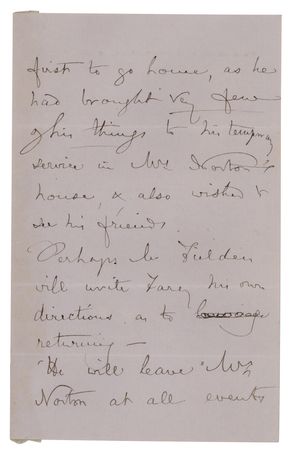 first to go home, as he
had brought vy few
of his things to his tempray
service in Mrs Norton's
house, & also wished to
see his friends.
Perhaps Mr Fielden
will write Farq his own
directions as to
returning —
He will leave Mrs
Norton at all events